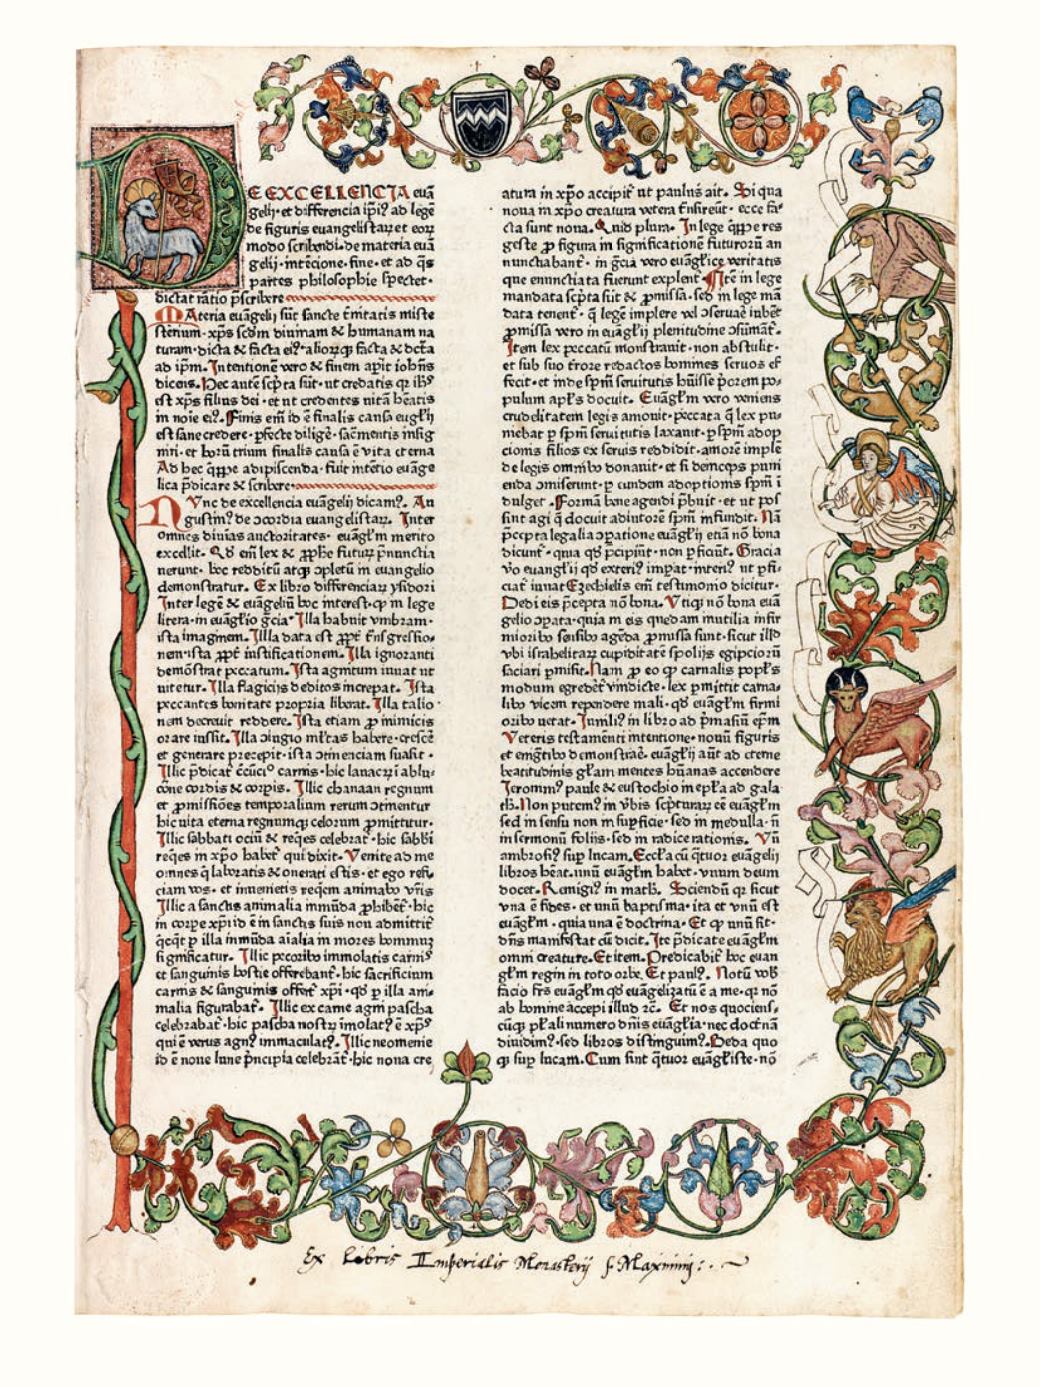 DE EXCELLENCIA euā
gelij·et differencia ip̄i⁹ ad legē
de figuris euangelistaꝝ et eoꝝ
modo scribendi·de materia euā
gelij·intēcione·fine·et ad q̄s
partes philosophie spectet·
dictat ratio p̄scribere
MAteria euāgelij sūt sancte t̄nitatis miste
sterium·xp̄s scdm diuinam & humanam na
turam·dicta & facta ei⁹·alioꝝq̄ꝫ facta & dcta
ad ip̄m. Intentionē vero & finem apit iohn̄s
dicens. Hec autē scp̄ta sūt·ut credatis qꝛ ih̄s
est xp̄s filius dei·et ut credentes vitā h̄eatis
in noīe ei⁹. Finis em̄ id ē finalis causa eug̃lij
est sane credere·p̄fecte diligē·sac̄mentis insig
niri·et hoꝝ trium finalis causa ē vita eterna
Ad hec q̄ꝑpe adipiscenda·fuit intētio euāge
lica p̄dicare & scribere
NVnc de excellencia euāgelij dicam⁹. Au
gustin⁹ de ɔcordia euangelistaꝝ. Inter
omnes diuīas auctoritates·euāgl̄m merito
excellit. Qd em̄ lex & ꝓph̄e futuꝝ p̄nunctia
uerunt·hoc redditū atqꝫ ɔpletū in euangelio
demonstratur. Ex libro differenciaꝝ ysidori
Inter legē & euāgeliū hoc interest·qꝫ in lege
litera·in euāg̃lio gr̄cia· Illa habuit vmbram·
ista imaginem. Illa data est ꝓpt̄ t̄nsgressio-
nem·ista ꝓpt̄ iustificationem. Illa ignoranti
demōstrat peccatum. Ista agnitum iuuat ut
uitetur. Illa flagicijs deditos increpat. Ista
peccantes bonitate propria liberat. Illa talio·
nem decreuit reddere. Ista etiam ꝓ inimicis
orare iussit. Illa ɔiugio ml̄tas habere·crescē
et generare precepit·ista ɔtinenciam suasit·
Illic p̄dicat̄ cic̄uc̄i⁰ carnis·hic lauacrī ablu-
cōne cordis & corpis. Illic chanaan regnum
et ꝓmissiōes temporalium rerum ɔtinentur
hic uita eterna regnumqꝫ celorum ꝓmittitur·
Illic sabbati ociū & reqes celebrat̄·hic sabb̄i
reqes in xp̄o habet̄ qui dixit·Venite ad me
omnes q̄ laboratis & onerati estis·et ego refi-
ciam vos·et inuenietis reqem animabꝫ vr̄is
Illic a sanctis animalia immūda ꝓhibēt̄·hic
in corpe xpī id ē in sanctis suis non admittit̄
q̄cq̄t p illa inmūda aīalia in mores hominuꝫ
significatur. Illic pecoribꝫ immolatis carnis
et sanguinis hostie offerebant̄·hic sacrificium
carnis & sanguinis offert̄ xpī·qd p illa ani-
malia figurabat̄. Illic ex carne agni pascha
celebrabat̄·hic pascha nostꝝ imolat⁹ ē xp̄s
qui ē verus agn⁹ immaculat⁹. Illic neomenie
id ē noue lune p̄ncipia celebrāt̄·hic noua cre
atura in xp̄o accipit̄ ut paulus ait. Si qua
noua in xp̄o creatura vetera t̄nsireūt·ecce fa-
cta sunt noua. Quid plura. In lege q̄ꝑpe res
geste ꝓ figura in significationē futuroꝝ an
nunctiabant̄·in gr̄cia vero euāg̃lice veritatis
que enunctiata fuerunt explent̄. Itē in lege
mandata scp̄ta sūt & ꝓmissa·sed in lege mā
data tenent̄·q̄ legē implere vel ɔseruare iubēt
ꝓmissa vero in euāg̃lij plenitudine ɔsūmāt̄.
Item lex peccatū monstrauit·non abstulit·
et sub suo t̄rore redactos homines seruos ef
fecit·et inde sp̄m seruitutis h̄uisse p̄orem po-
pulum apl̄s docuit. Euāgl̄m vero veniens
crudelitatem legis amouit·peccata q̄ lex pu-
niebat p sp̄m seruitutis laxauit·p sp̄m adop
cionis filios ex seruis reddidit·amorē imple
de legis omnibꝫ donauit·et si deinceps puni
enda ɔmiserunt·p eundem adoptionis sp̄m ī
dulget. Formā bene agendi p̄buit·et ut pos
sint agi q̄ docuit adiutorē sp̄m infundit. Nā
p̄cepta legalia ɔpatione euāg̃lij etiā nō bona
dicunt̄·quia qd p̄cipiūt·non p̄ficiūt. Gracia
vo euāg̃lij qd exteri⁹ imp̄at·interi⁹ ut p̄fi-
ciat̄ iuuat Ezechielis em̄ testimonio dicitur·
Dedi eis p̄cepta nō bona. Vtiqꝫ nō bona euā
gelio ɔpata·quia in eis quedam inutilia infir
mioribꝫ sēsibꝫ agēda ꝓmissa sunt·sicut illd
vbi israhelitaꝝ cupiditatē spolijs egipcioꝝ
saciari p̄misit. Nam ꝓ eo qꝫ carnalis popl̄s
modum egredēt̄ vindicte·lex p̄mittit carna-
libꝫ vicem rependere mali·qd euāgl̄m firmi
oribꝫ uetat. Iunili⁹ in libro ad p̄masiū ep̄m
Veteris testamēti intentione·nouū figuris
et enigtibꝫ demonstrāe·euāg̃lij aūt ad eterne
beatitudinis gl̄am mentes hūanas accendere
Ieronim⁹ paule & eustochio in ep̄la ad gala
th̄. Non putem⁹ in v̄bis scp̄turaꝝ eē euāgl̄m
sed in sensu non in suꝑficie·sed in medulla·n̄
in sermonū folijs·sed in radice rationis. Vn̄
ambrosi⁹ suꝑ lucam. Eccl̄ia cū q̄tuor euāgelij
libros h̄eat·unū euāgl̄m habet·vnum deum
docet. Remigi⁹ in math̄. Sciendū qꝫ sicut
vna ē fides·et unū baptisma·ita et vnū est
euāgl̄m·quia una ē doctrina·Et qꝫ unū sit·
dn̄s manifestat cū dicit. Ite p̄dicate euāgl̄m
omni creature. Et item. Predicabit̄ hoc euan
gl̄m regni in toto orbe. Et paul⁹. Notū vob̄
facio frs̄ euāgl̄m qd euāgelizatū ē a me·qꝛ nō
ab homine accepi illud ꝛc̄. Et nos quociens-
cūqꝫ pl̄ali numero dn̄is euāg̃lia·nec doctr̄inā
diuidim⁹·sed libros distinguim⁹. Beda quo
qꝫ suꝑ lucam. Cum sint q̄tuor euāg̃liste·nō
Ex Libris Imperialis Monasterij S. Maximini: